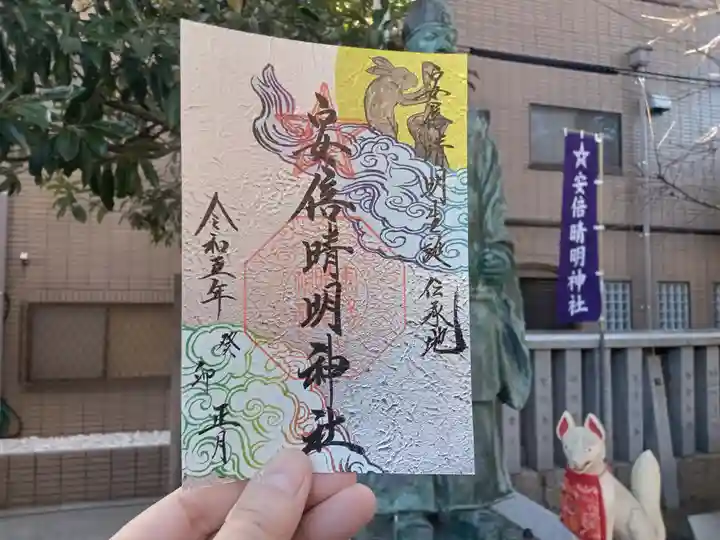 安倍晴明生誕伝承地
安倍晴明神社
令和五年
癸卯
正月
安倍晴明神社